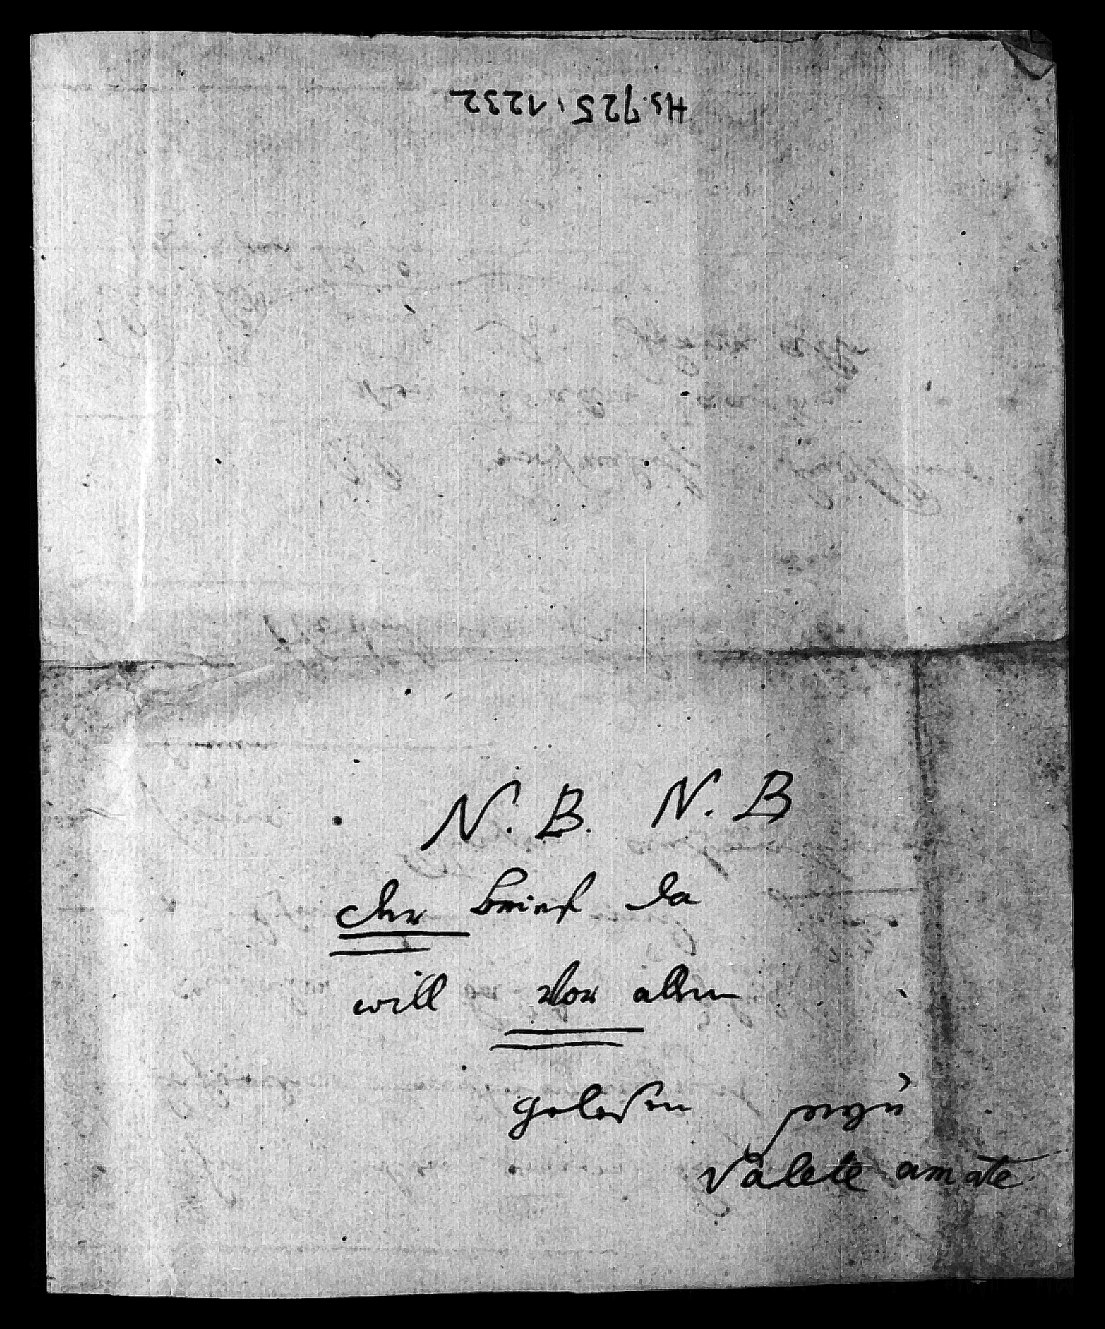 Hs 725, 1232
N. B. N. B
der brief da
will vor allen
gelesen seyn
Valete amate